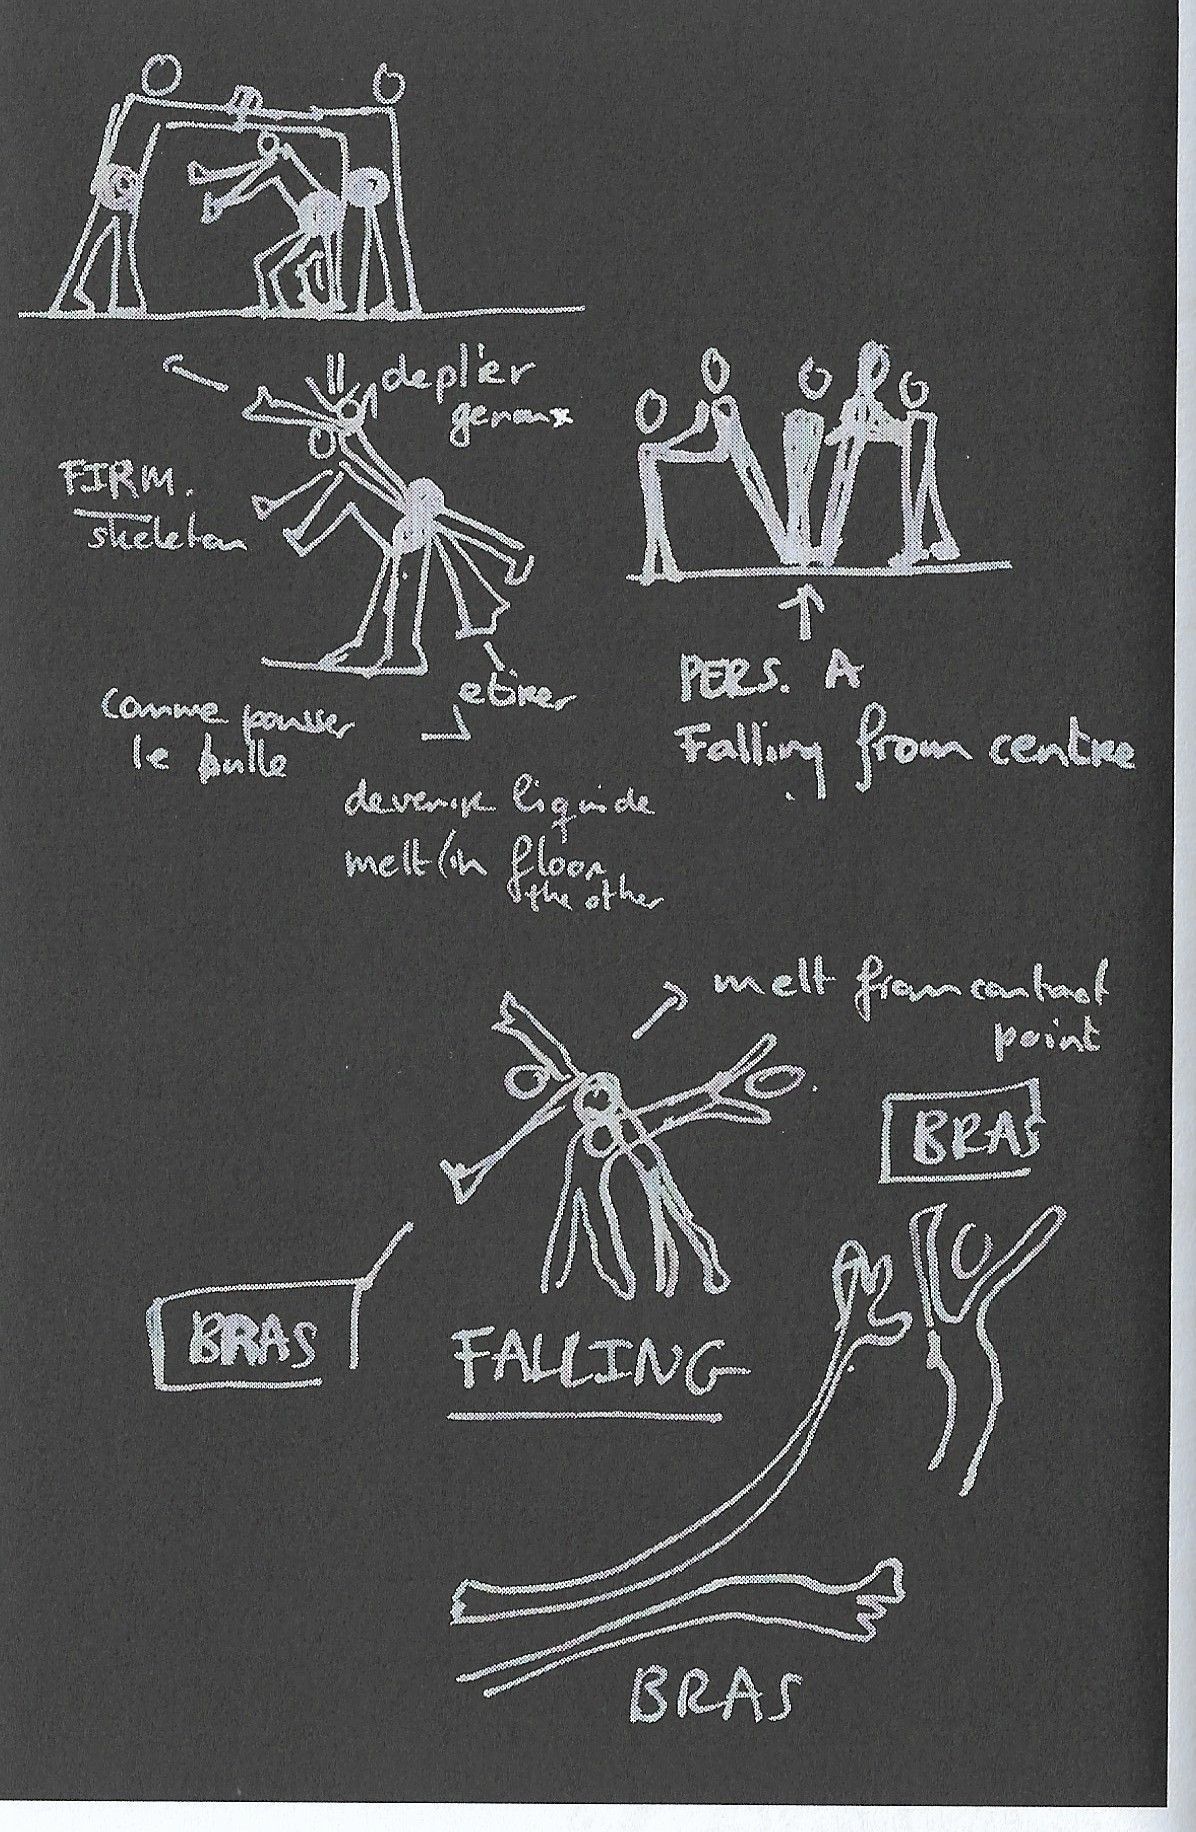 deplier
genoux
FIRM.
skeleton
etirer
comme pousser
le bulle
PERS. A
Falling from centre
devenir liquide
melt (in floor
the other
melt from contact
point
BRAS
BRAS
FALLING
BRAS